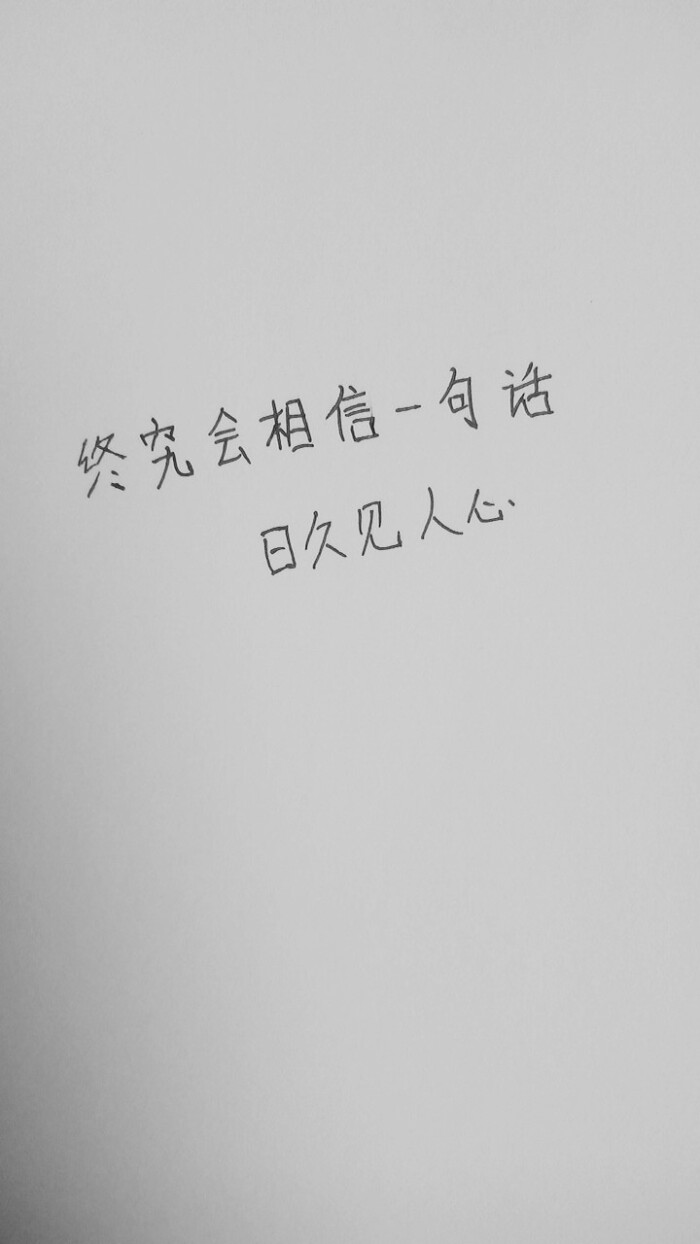 终究会相信一句话
日久见人心